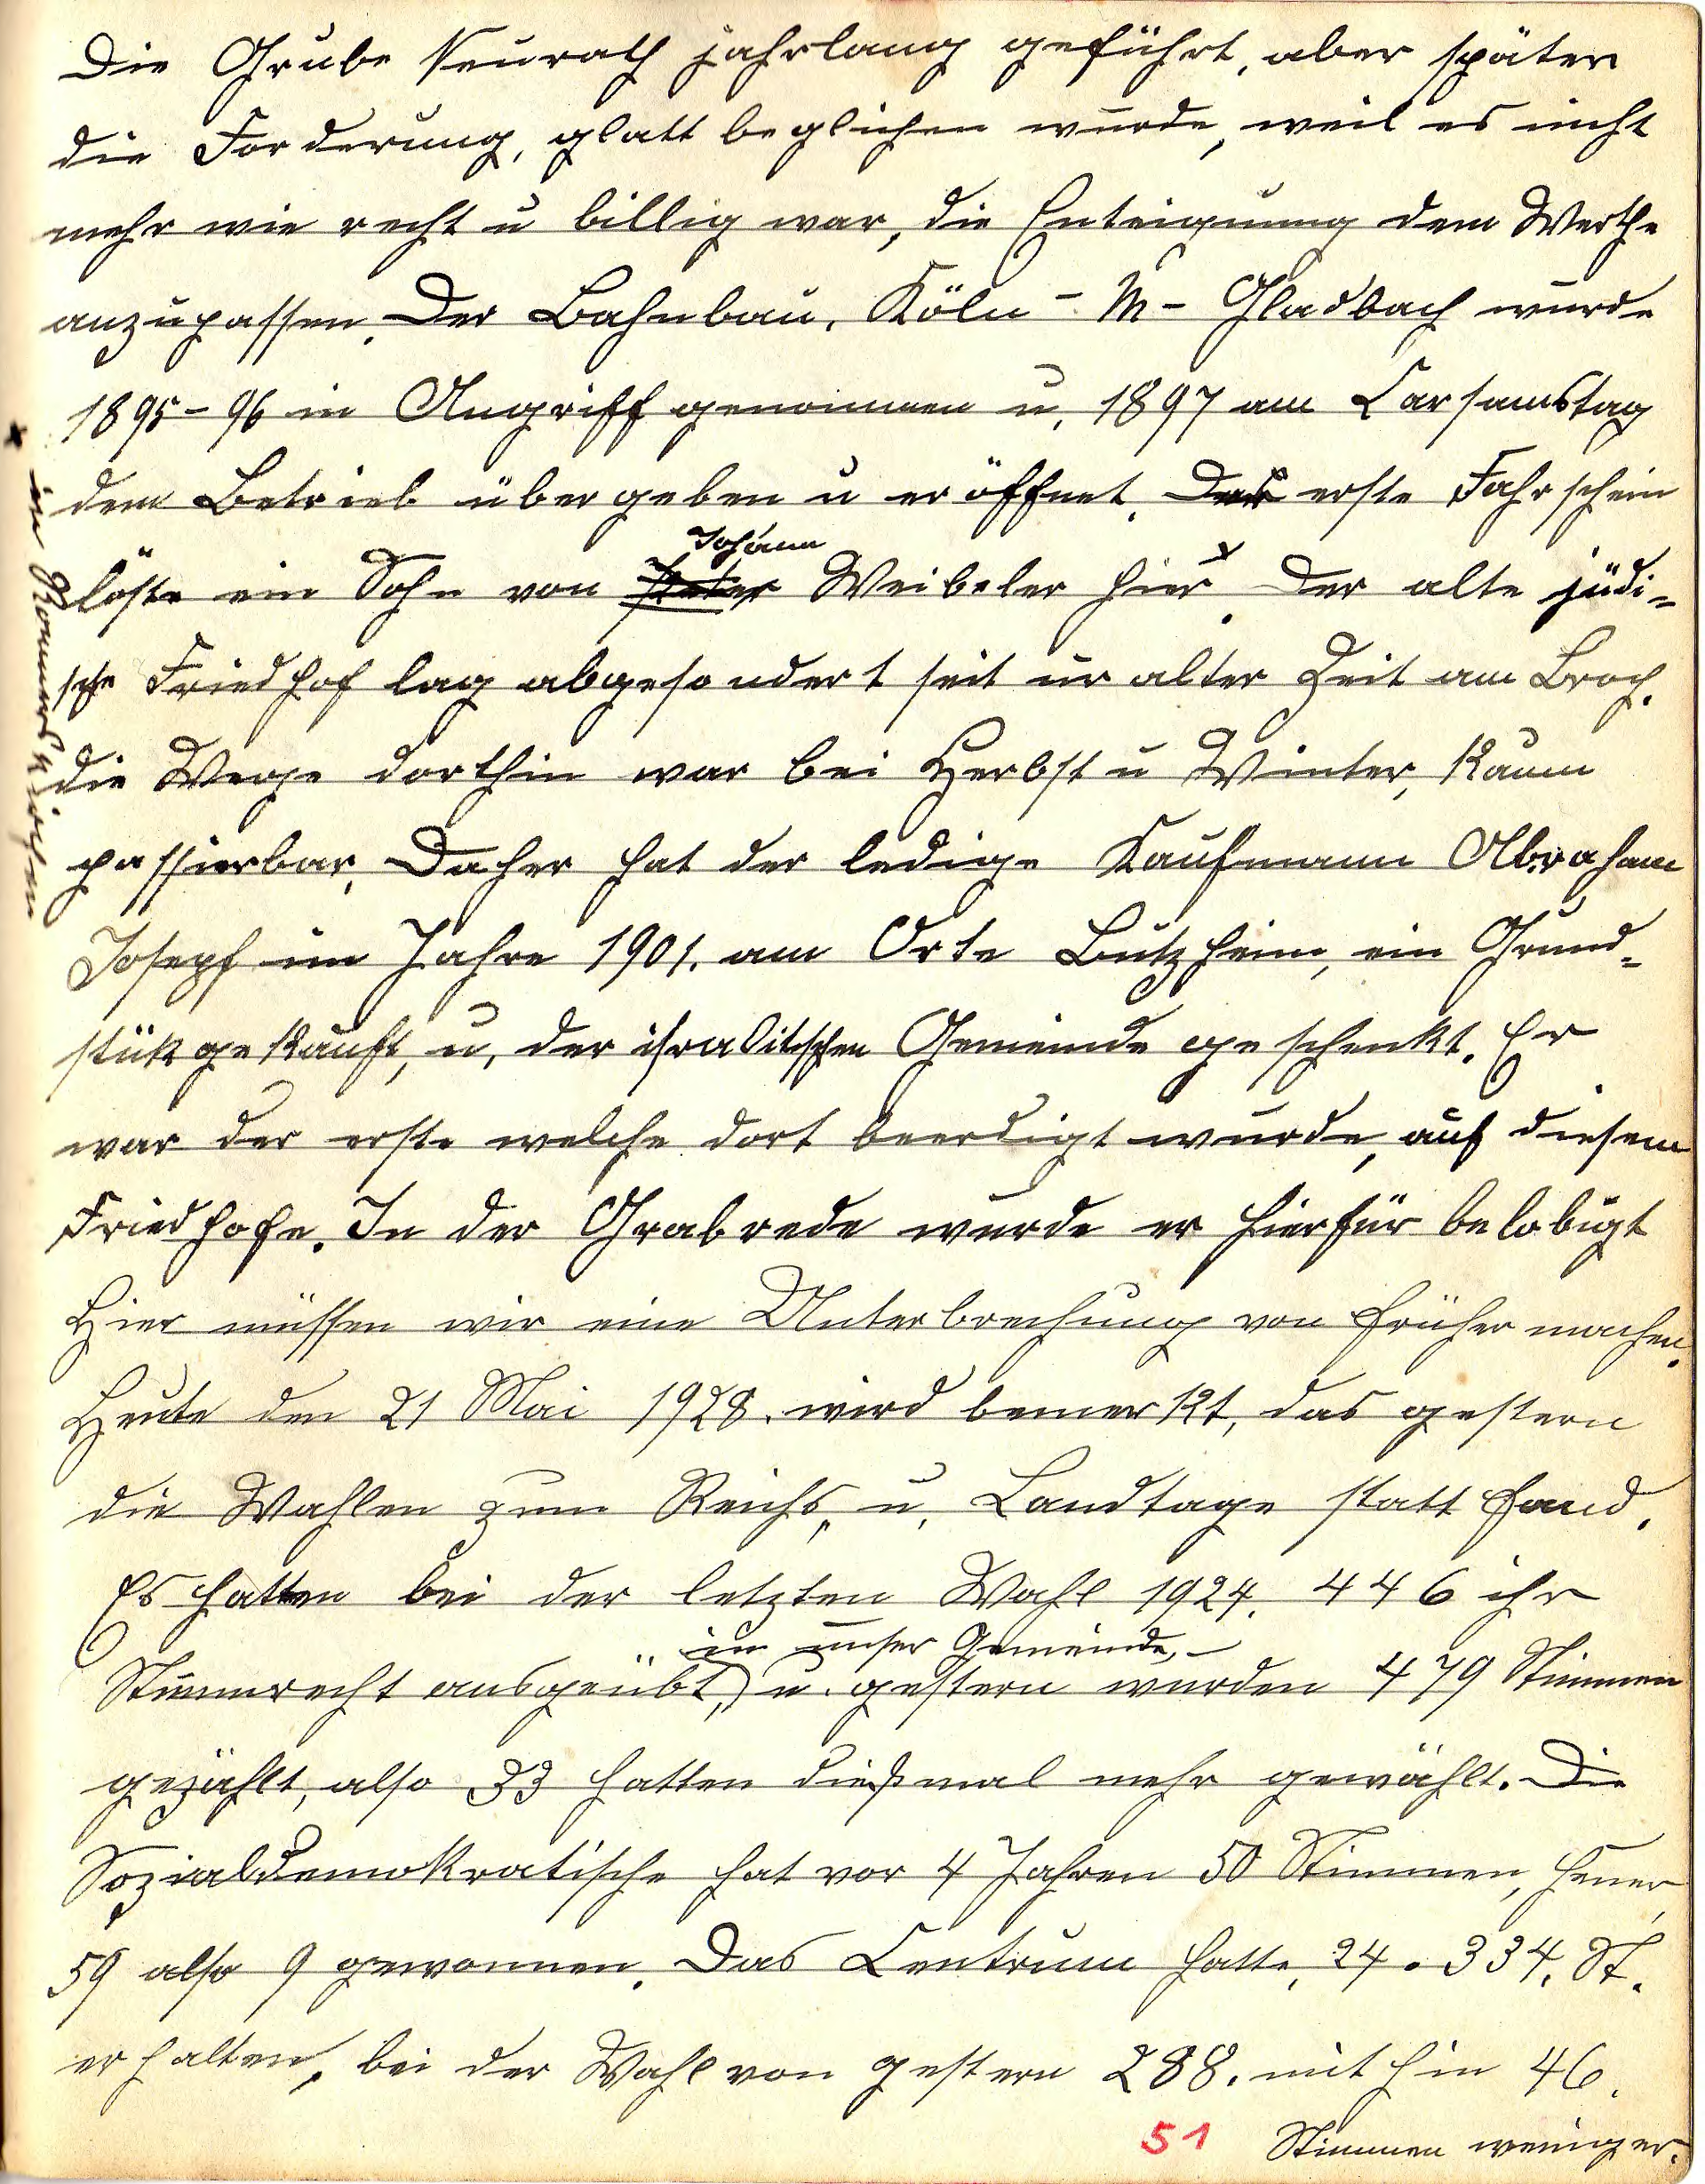 Die Grube Neurath jahrlang geführt, aber später
die Forderung, glatt beglichen wurde, weil es nicht
mehr wie recht u billig war, die Enteignung dem Werthe
anzupassen. Der Bahnbau, Köln - M - Gladbach wurde
1895-96 in Angriff genommen u, 1897 am Carsamstag
dem Betrieb übergeben u eröffnet. Der erste Fahrschein
Johann
löste ein Sohn von Peter Weibeler hier x. Der alte jüdi=
sche Friedhof lag abgesondert seit uralter Zeit am Broch.
die Wege dorthin war bei Herbst u Winter, kaum
passierbar. Daher hat der ledige Kaufmann Abraham
Josepf im Jahre 1901. am Orte Butzheim, ein Grund=
stük gekauft, u, der isralitschen Gemeinde geschenkt. Er
war der erste welche dort beerdigt wurde, auf diesem
Friedhofe. In der Grabrede wurde er hierfür belobigt
Hier müssen wir eine Unterbrechung von früher machen.
Heute den 21 Mai 1928. wird bemerkt, das gestern
die Wahlen zum Reichs, u, Landtage statt fand.
Es hatten bei der letzten Wahl 1924. 446 ihr
in unser Gemeinde,
Stimmrecht ausgeübt,) u. gestern wurden 479 Stimmen
gezählt, also 33 hatten dießmal mehr gewählt. Die
Sozialdemokratische hat vor 4 Jahren 50 Stimmen, heuer
59 also 9 gewonnen. Das Centrum hatte, 24. 334. St.
erhalten, bei der Wahl von gestern 288. mithin 46.
Stimmen weniger.
51
x in Rommerskirchen